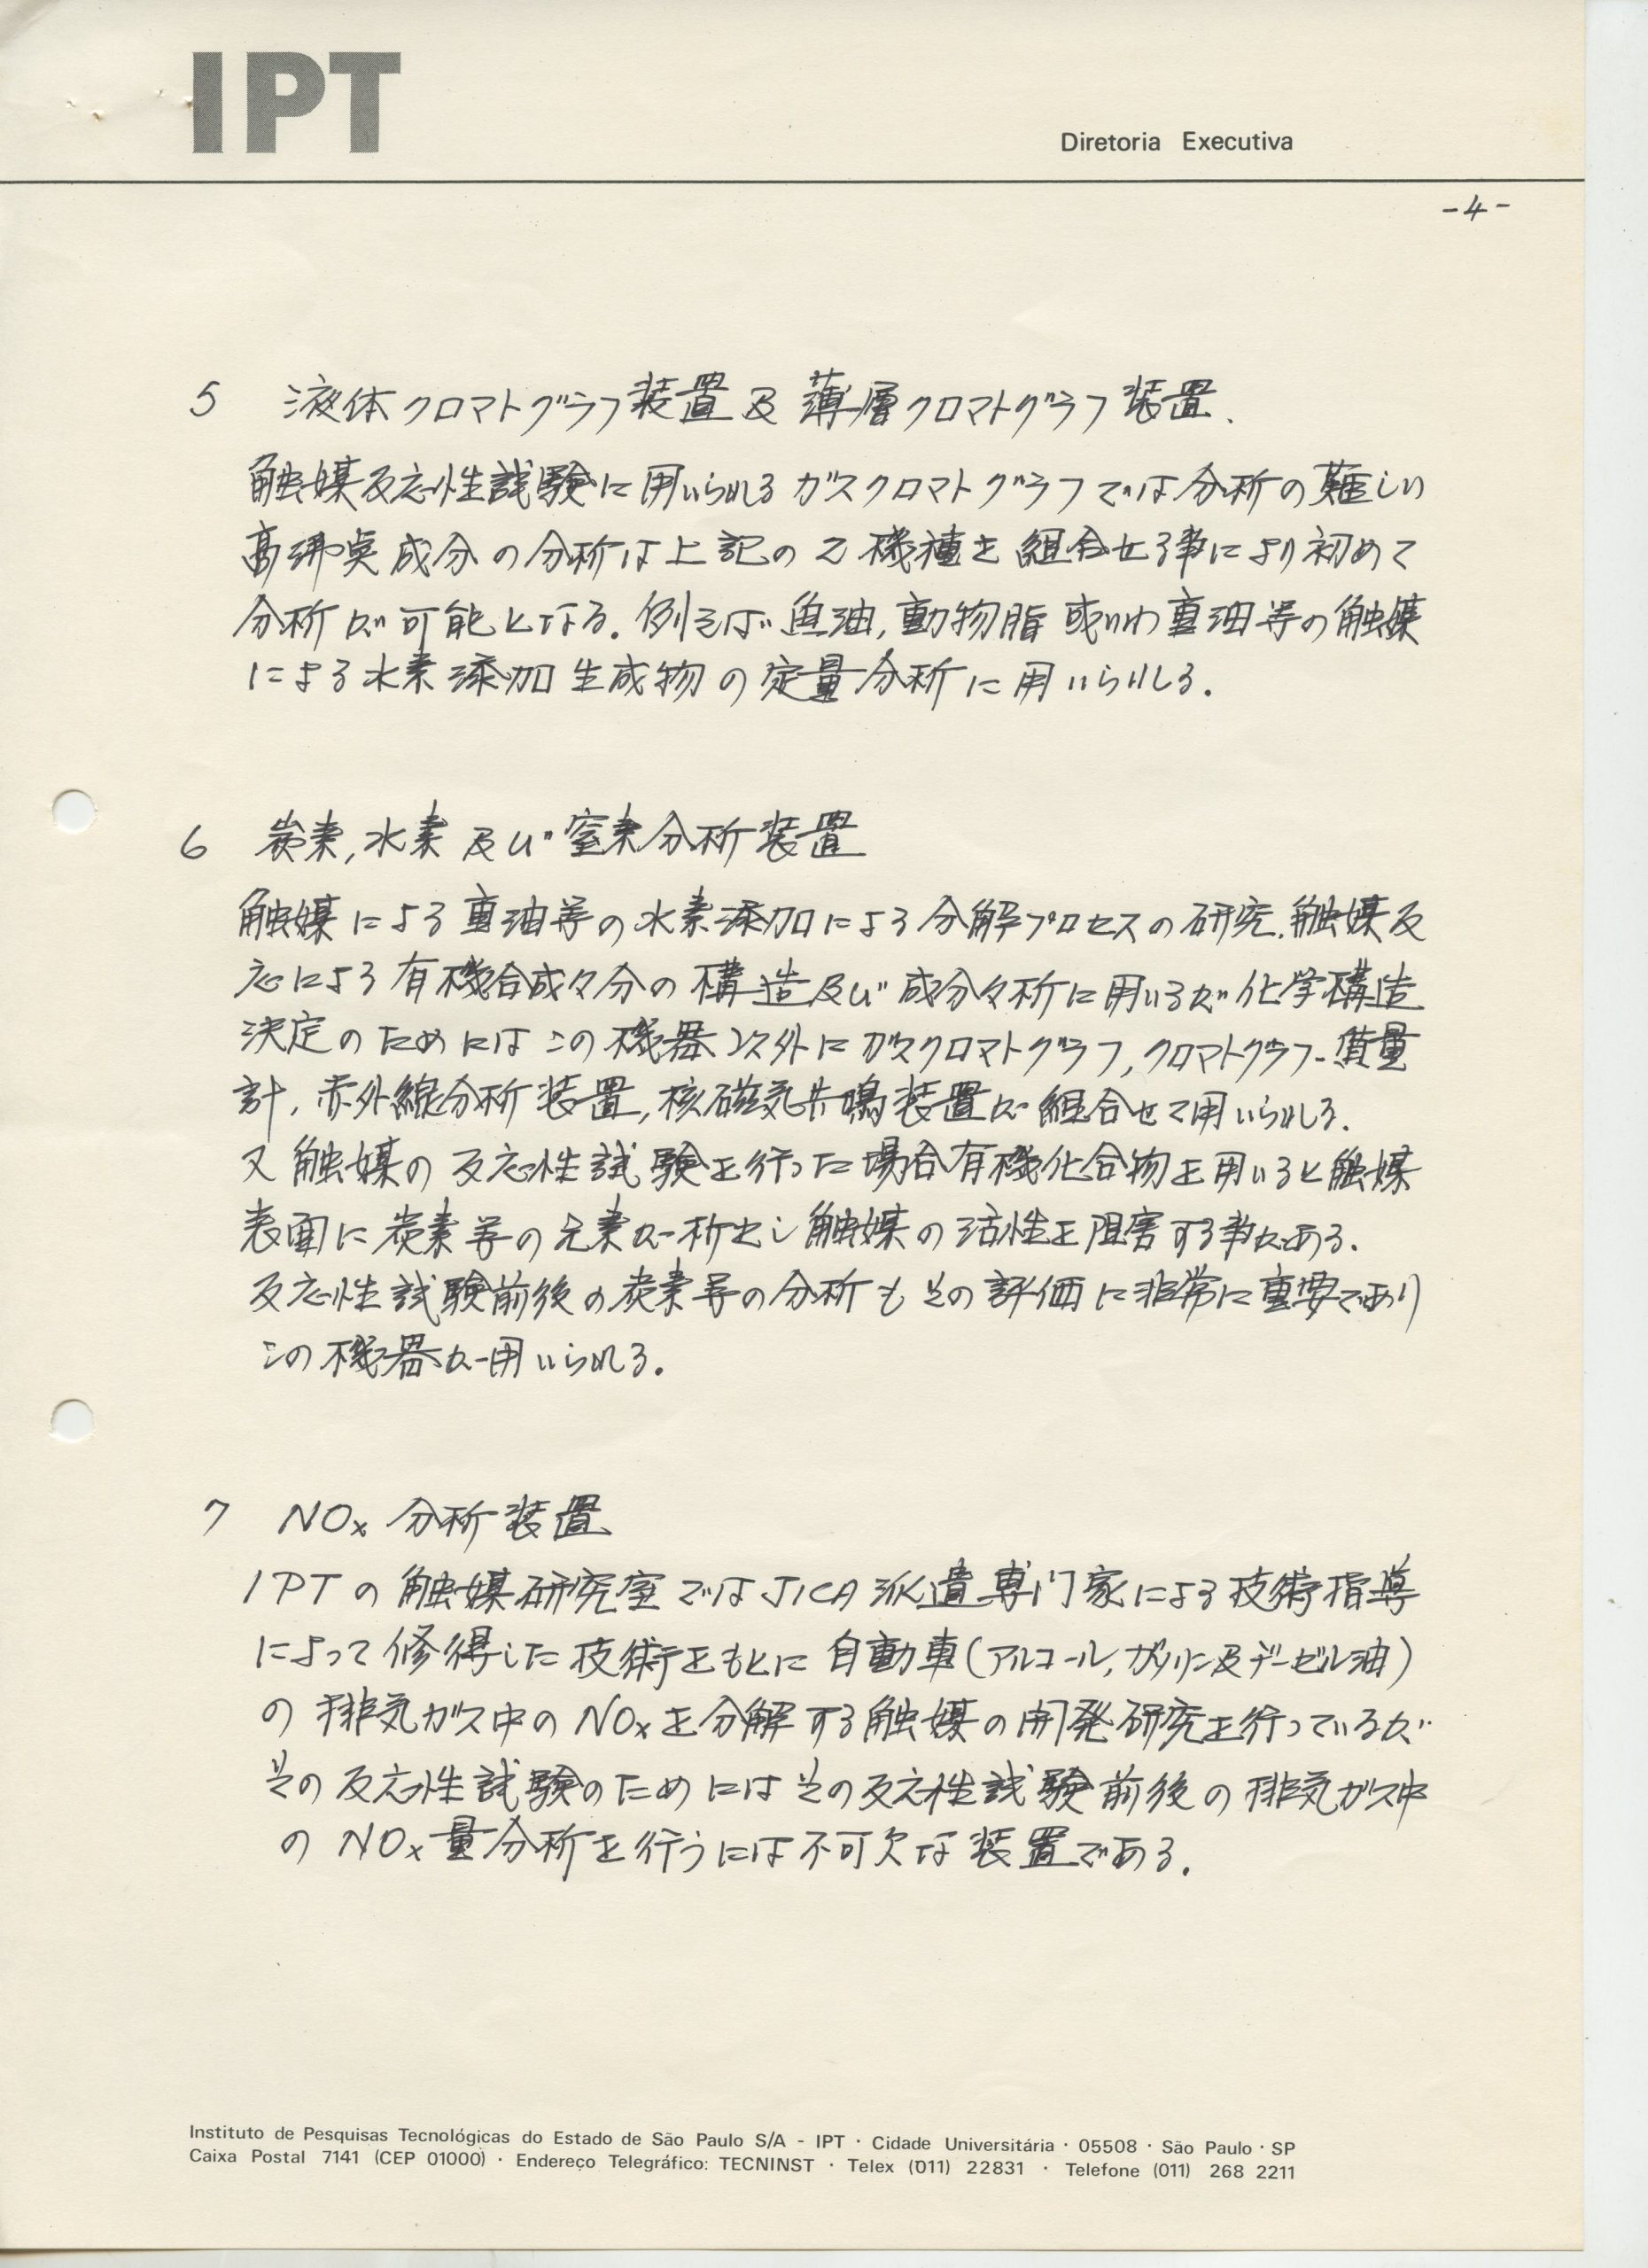 IPT
Diretoria Executiva
-4-
5 液体クロマトグラフ装置及薄層クロマトグラフ装置.
触媒反応性試験に用いられるガスクロマトグラフでは分析の難しい
高沸点成分の分析は上記の2機種を組合せる事により初めて
分析が可能となる. 例えば魚油, 動物脂或いわ重油等の触媒
による水素添加生成物の定量分析に用いられる.
6 炭素, 水素及び窒素分析装置
触媒による重油等の水素添加による分解プロセスの研究. 触媒反
応による有機合成々分の構造及び成分々析に用いるが化学構造
決定のためにはこの機器以外にガスクロマトグラフ, クロマトグラフ-質量
計, 赤外線分析装置, 核磁気共鳴装置が組合せて用いられる.
又触媒の反応性試験を行った場合有機化合物を用いると触媒
表面に炭素等の元素が析出し触媒の活性を阻害する事がある.
反応性試験前後の炭素等の分析もその評価に非常に重要であり
この機器が用いられる.
7 NOx 分析装置
IPTの触媒研究室ではJICA派遣専門家による技術指導
によって修得した技術をもとに自動車(アルコール, ガソリン及デーゼル油)
の排気ガス中のNOxを分解する触媒の開発研究を行っているが
その反応性試験のためにはその反応性試験前後の排気ガス中
のNOx量分析を行うには不可欠な装置である.
Instituto de Pesquisas Tecnológicas do Estado de São Paulo S/A - IPT · Cidade Universitária · 05508 · São Paulo · SP
Caixa Postal 7141 (CEP 01000) · Endereço Telegráfico: TECNINST · Telex (011) 22831 · Telefone (011) 268 2211